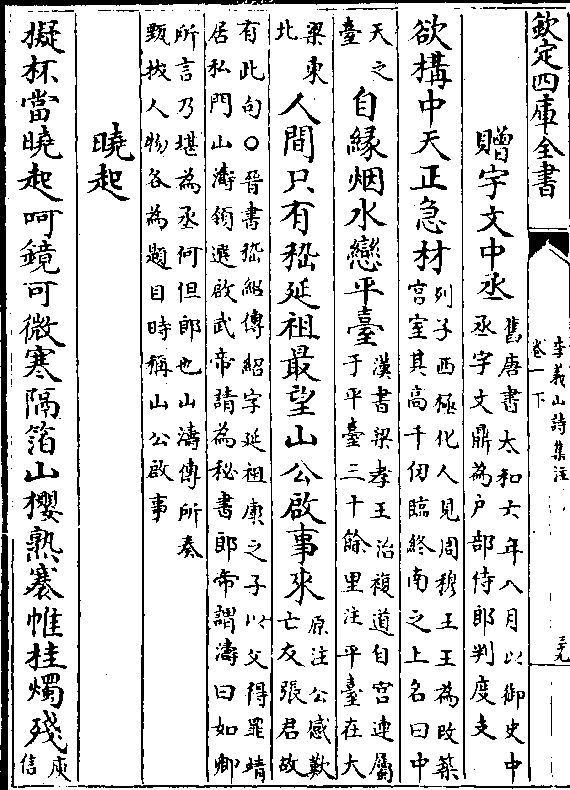 欽定四庫全書
李義山詩集注
卷一下
三九
贈宇文中丞
舊唐書太和六年八月以御史中
丞宇文鼎為戶部侍郎判度支
欲構中天正急材
列子西極化人見周穆王王為改築
宫室其高千仞臨終南之上名曰中
天之
臺
自緣烟水戀平臺
漢書梁孝王治複道自宫連屬
于平臺三十餘里注平臺在大
梁東
北
人間只有嵇延祖最望山公啟事來
原注公感歎
亡友張君故
有此句○晉書嵇紹傳紹字延祖康之子以父得罪靖
居私門山濤領選啟武帝請為秘書郎帝謂濤曰如卿
所言乃堪為丞何但郎也山濤傳所奏
甄拔人物各為題目時稱山公啟事
曉起
擬杯當曉起呵鏡可微寒隔箔山櫻熟褰帷桂燭殘
庾
信